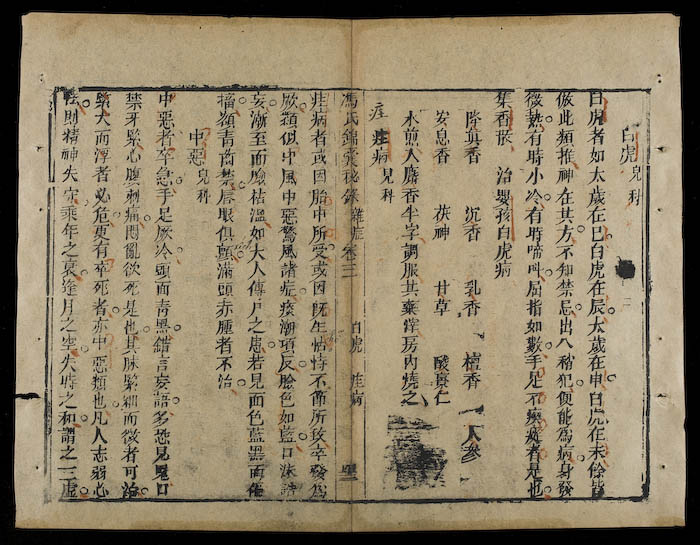 白虎 兒科
白虎者如太歲在巳白虎在辰太歲在申白虎在未餘皆
倣此類推神在其方不知禁忌出入稍犯便能為病身發
微熱有時小冷有時啼叫屈指如數手足不瘈瘲者是也
集香散 治嬰孩白虎病
降真香 沉香 乳香 檀香 人參
安息香 茯神 甘草 酸棗仁
水煎入麝香半字調服其藥滓房內燒之
疰 疰病 兒科
馮氏錦囊秘錄 雜症 卷三 白虎 疰病
疰病者或因胎中所受或因既生怙恃不節所致卒發為
厥類似中風中惡驚風諸症痰潮項反臉色如藍口沫語
妄漸至面臉枯溫如大人傳尸之患若見面色藍黑面
搐額青齒禁唇眼俱顫滿頭赤腫者不治
中惡 兒科
中惡者卒急手足厥冷頭面青黑錯言妄語多恐見鬼口
禁牙緊心腹刺痛悶亂欲死是也其脉緊細而微者可治
緊大而浮者必危更有卒死者亦中惡類也凡人志弱心
怯則精神失守乘年之衰逢月之空失時之和謂之三虛